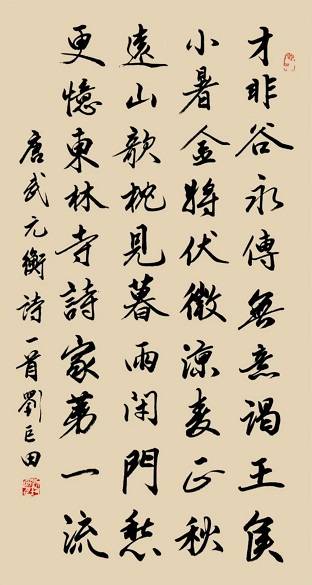 才非谷永傳無意謁王侯
小暑金將伏微涼麦正秋
遠山欹枕見暮雨閉門愁
更憶東林寺詩家第一流
唐武元衡詩一首劉巨田